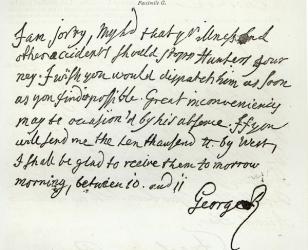 Facsimile G.
I am sorry, My Ld that yr Illness and
other accidents should stopp Humbers Jour
ney. I wish you would dispatch him as soon
as you find possible. Great inconveniency
may be occasion'd by his absence. If you
will send me the ten thousand tt. by West,
I shall be glad to receive them to morrow
morning, between 10. and 11
George R